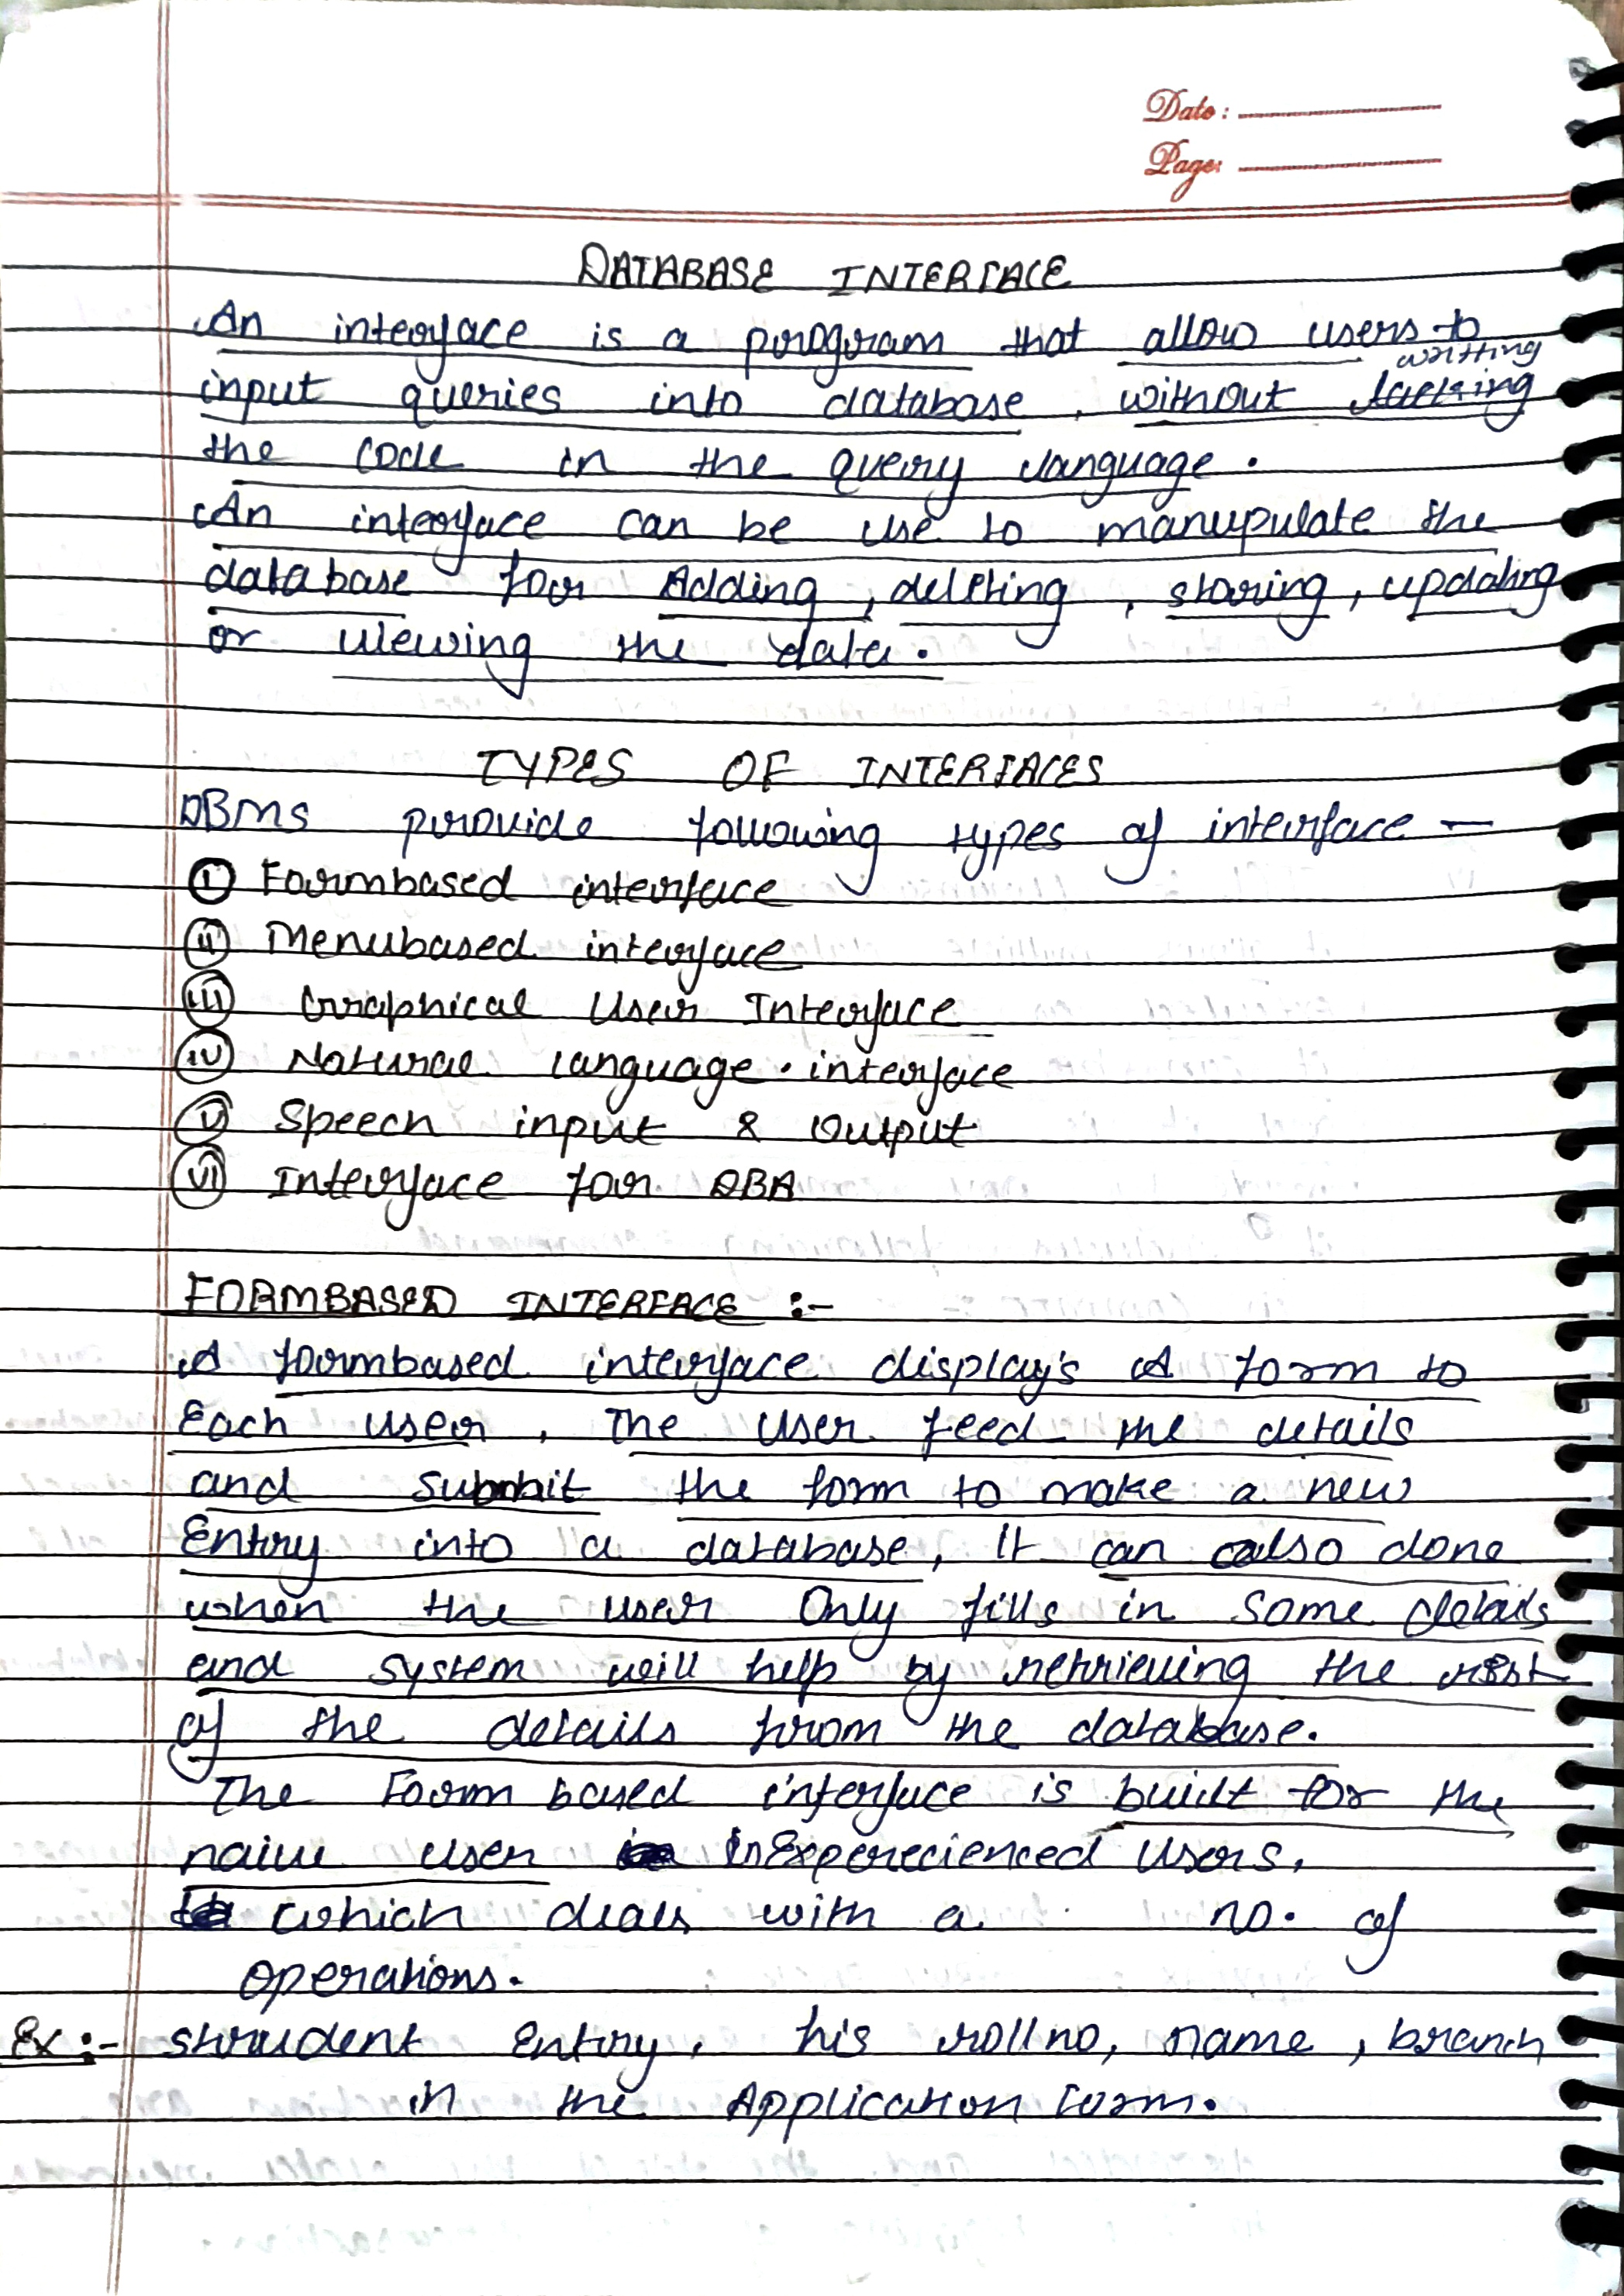 Date:
Page:
DATABASE INTERFACE
An interface is a program that allow users to
writting
input queries into database, without
the code in the query language.
An interface can be use to manupulate the
database for Adding, deleting, storing, updating
or viewing the data.
TYPES OF INTERFACES
DBMS provide following types of interface —
(I) Formbased interface
(II) Menubased interface
(III) Graphical User Interface
(IV) Natural language. interface
(V) Speech input & Output
(VI) Interface for DBA
FORMBASED INTERFACE :-
A formbased interface display's A form to
Each user, The user feed the details
and submit the form to make a new
Entry into a database, It can also done
when the user Only fills in some details
and system will help by retrieving the rest
of the details from the database.
The Form based interface is built for the
naive user inExperecienced Users.
which deals with a no. of
operations.
Ex:- student Entry, his roll no, name, branch
in the Application Form.